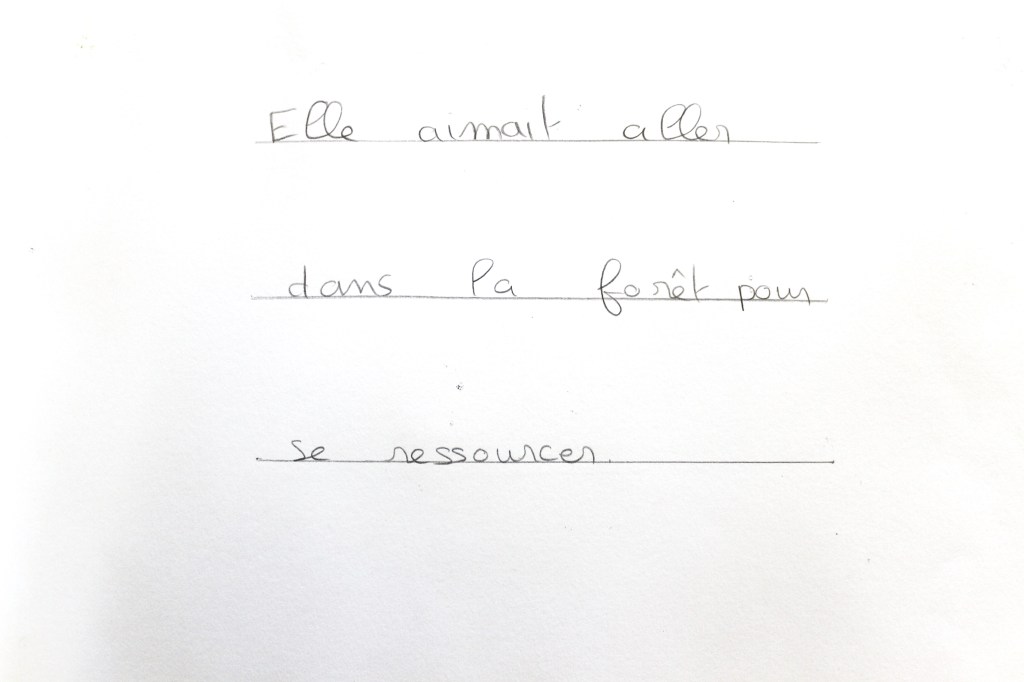 Elle aimait aller
dans la forêt pour
se ressourcer.